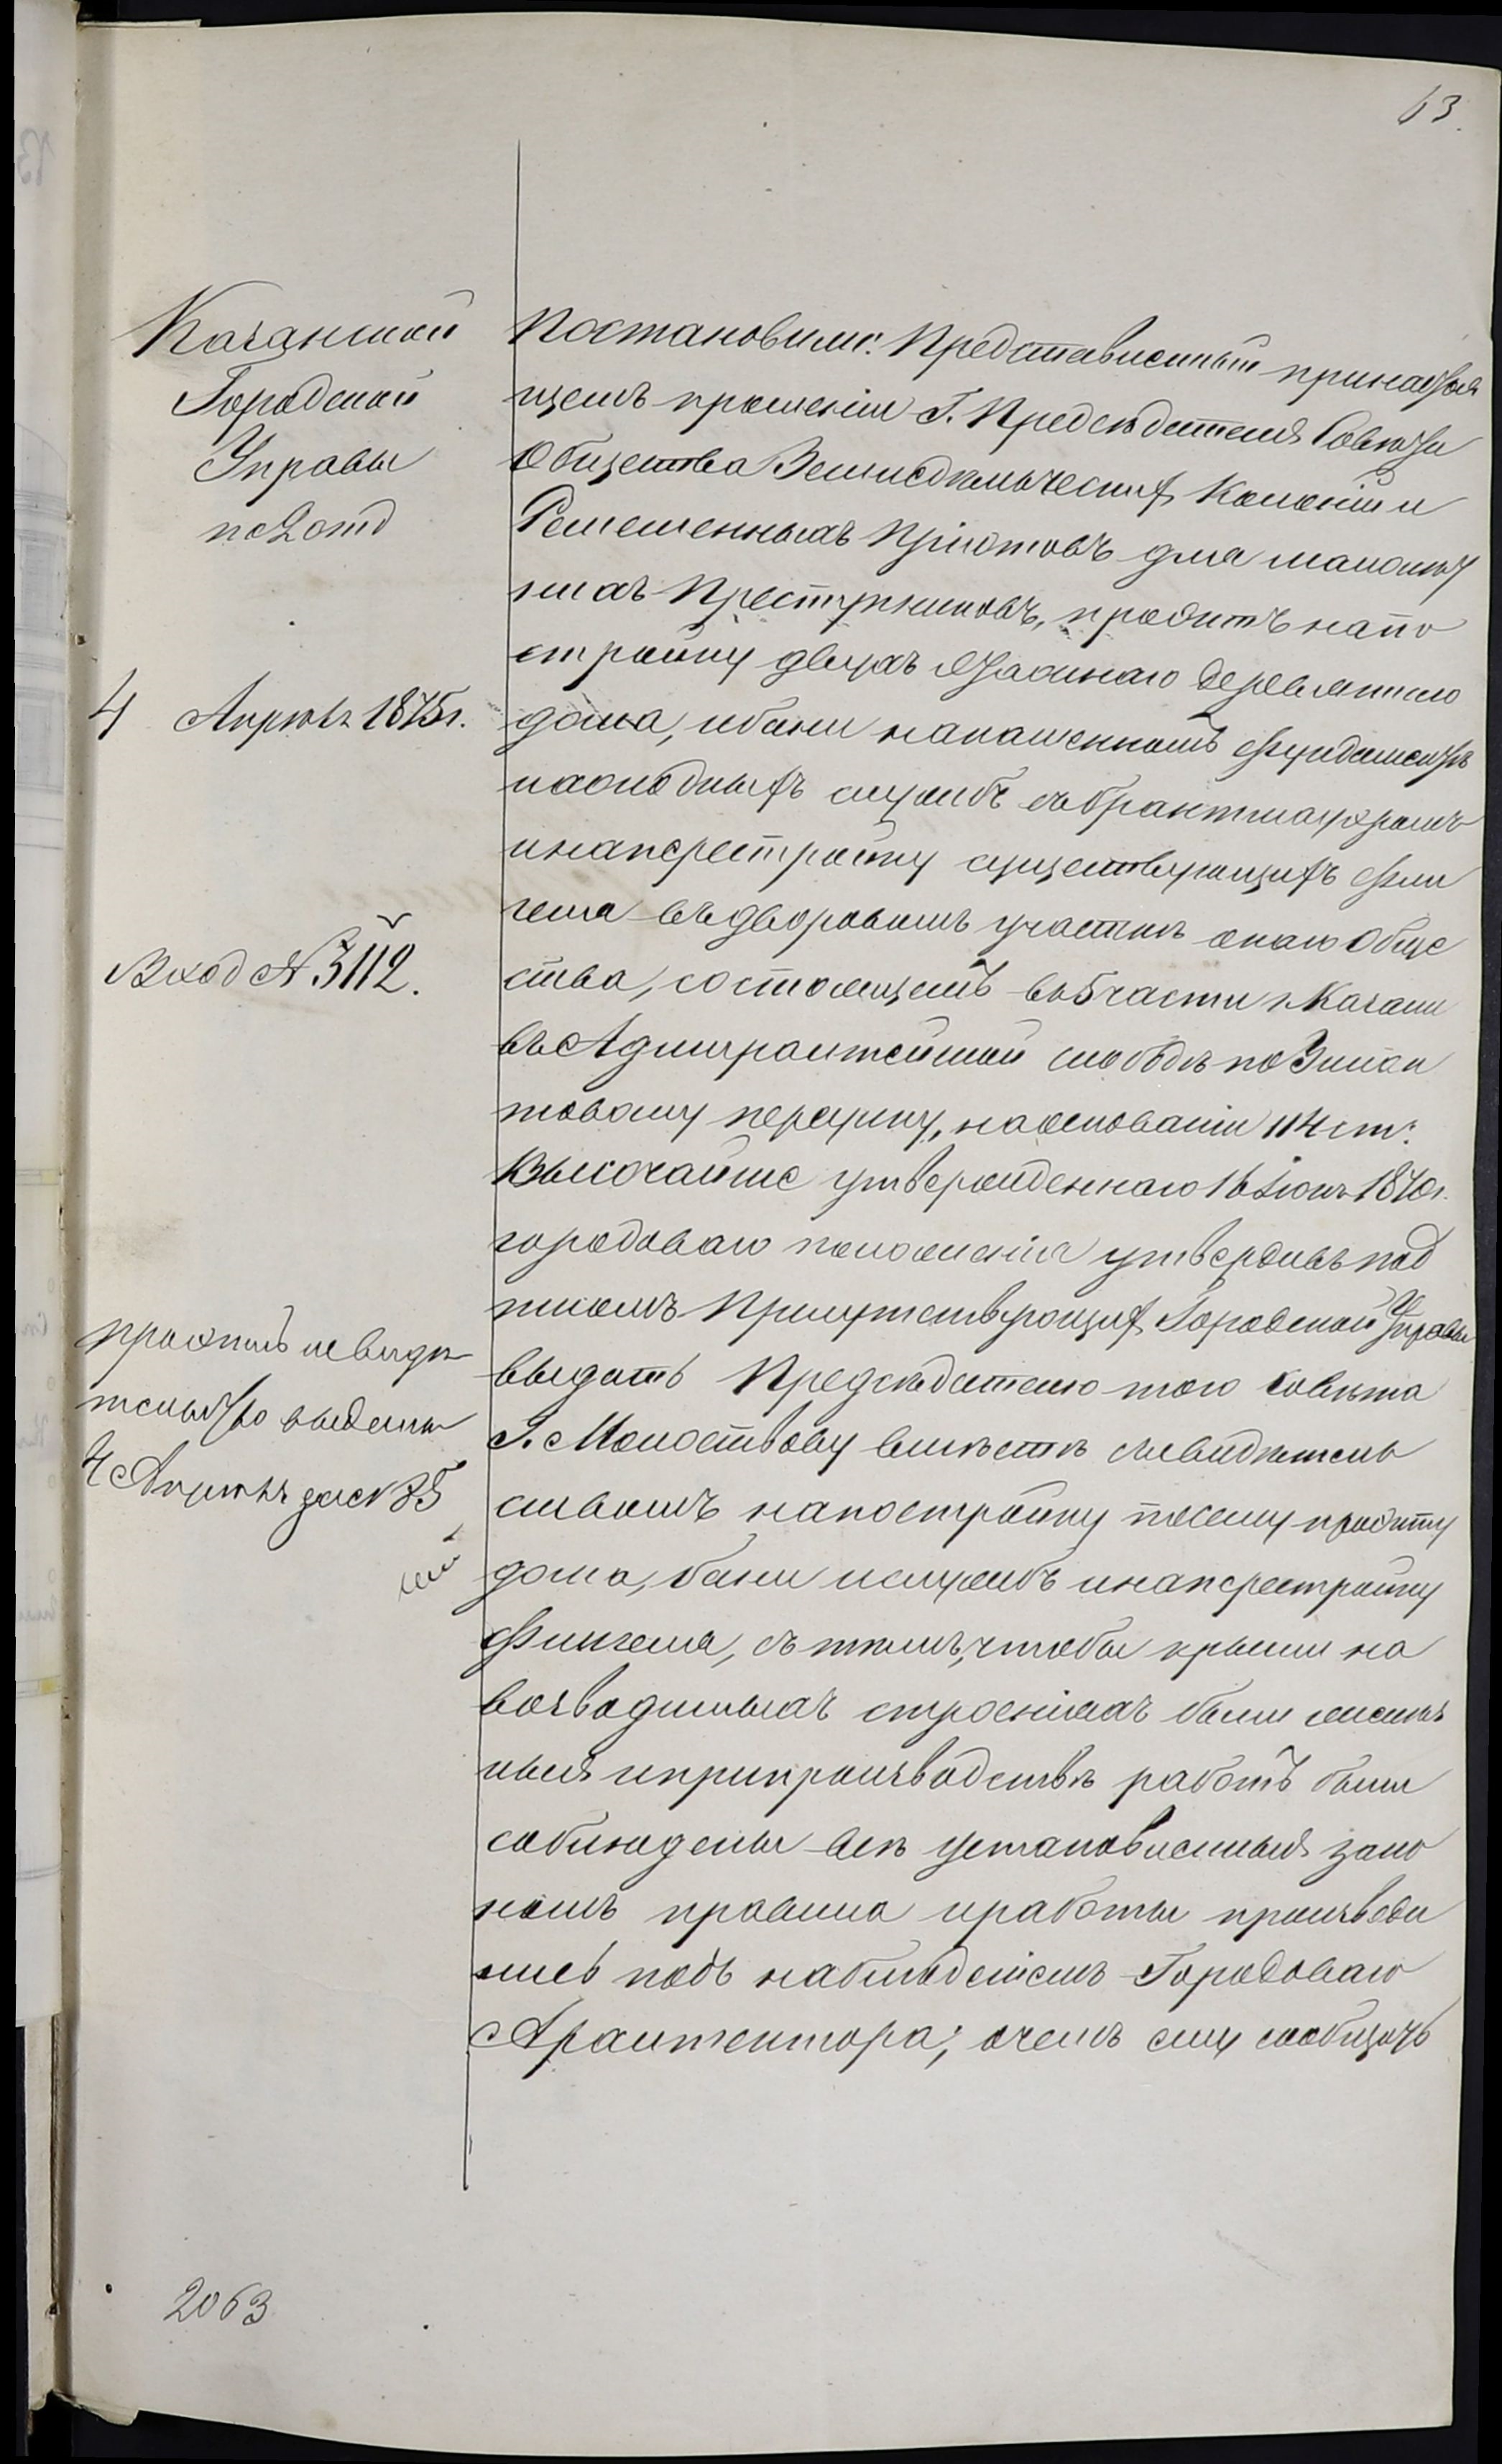 63.
Казанской
Городской
Управы
по 2 отд
4 Апрѣля 1875 г.
Вход № 3112.
проэктъ и свидѣ
тельство выданы
4 Апрѣля за № 85
Постановили: Представленный при настоя
щемъ прошеніи Г. Предсѣдателя Совѣта
Общества Земледѣльческих Колоній и
Ремесленныхъ Пріютовъ для малолѣт
нихъ Преступниковъ, проэктъ на по
стройку двухъ этажнаго деревяннаго
дома, и бани на каменномъ фундаментѣ
холодныхъ службъ съ брантмауэромъ
и на перестройку существующихъ фли
геля въ дворовомъ участкѣ онаго Обще
ства, состоящемъ въ 5 части г. Казани
въ Адмиралтейской слободѣ по Зилан
товому переулку, на основаніи 114 ст:
Высочайше утвержденнаго 16 Іюня 1870 г.
городоваго положенія утвердивъ под
писомъ Присутствующих Городской Управы
выдать Предсѣдателю того Совѣта
Г. Молоствову вмѣстѣ съ свидѣтель
ствомъ на постройку по сему проэкту
дома, бани и службъ и на перестройку
флигеля, съ тѣмъ, чтобы крыши на
возводимыхъ строеніяхъ были желѣз
ныя и при производствѣ работъ были
соблюдены всѣ установленныя зако
номъ правила и работы производи
лись подъ наблюденіемъ Городоваго
Архитектора; о чемъ ему сообщить
2063